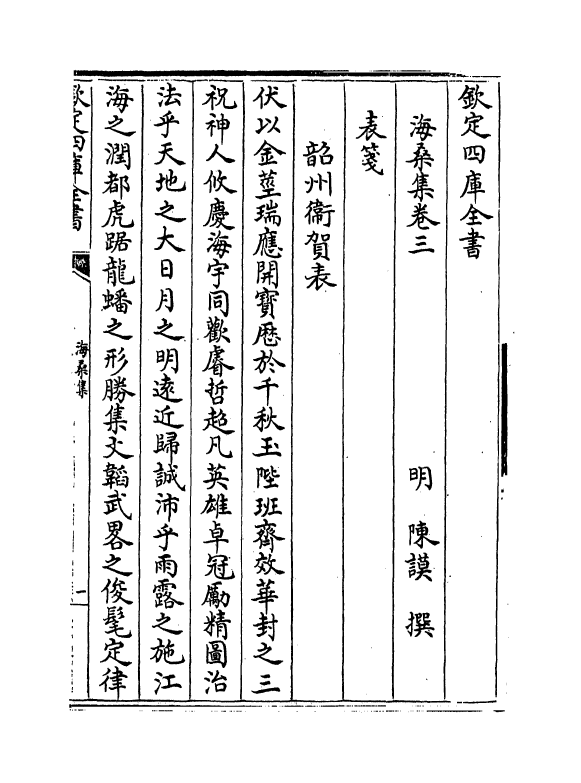 欽定四庫全書
海桑集卷三
明 陳謨 撰
表箋
韶州衞賀表
伏以金莖瑞應開寶厯於千秋玉陛班齊效華封之三
祝神人攸慶海宇同歡睿哲超凡英雄卓冠勵精圖治
法乎天地之大日月之明遠近歸誠沛乎雨露之施江
海之潤都虎踞龍蟠之形勝集文韜武畧之俊髦定律
欽定四庫全書
海桑集
一